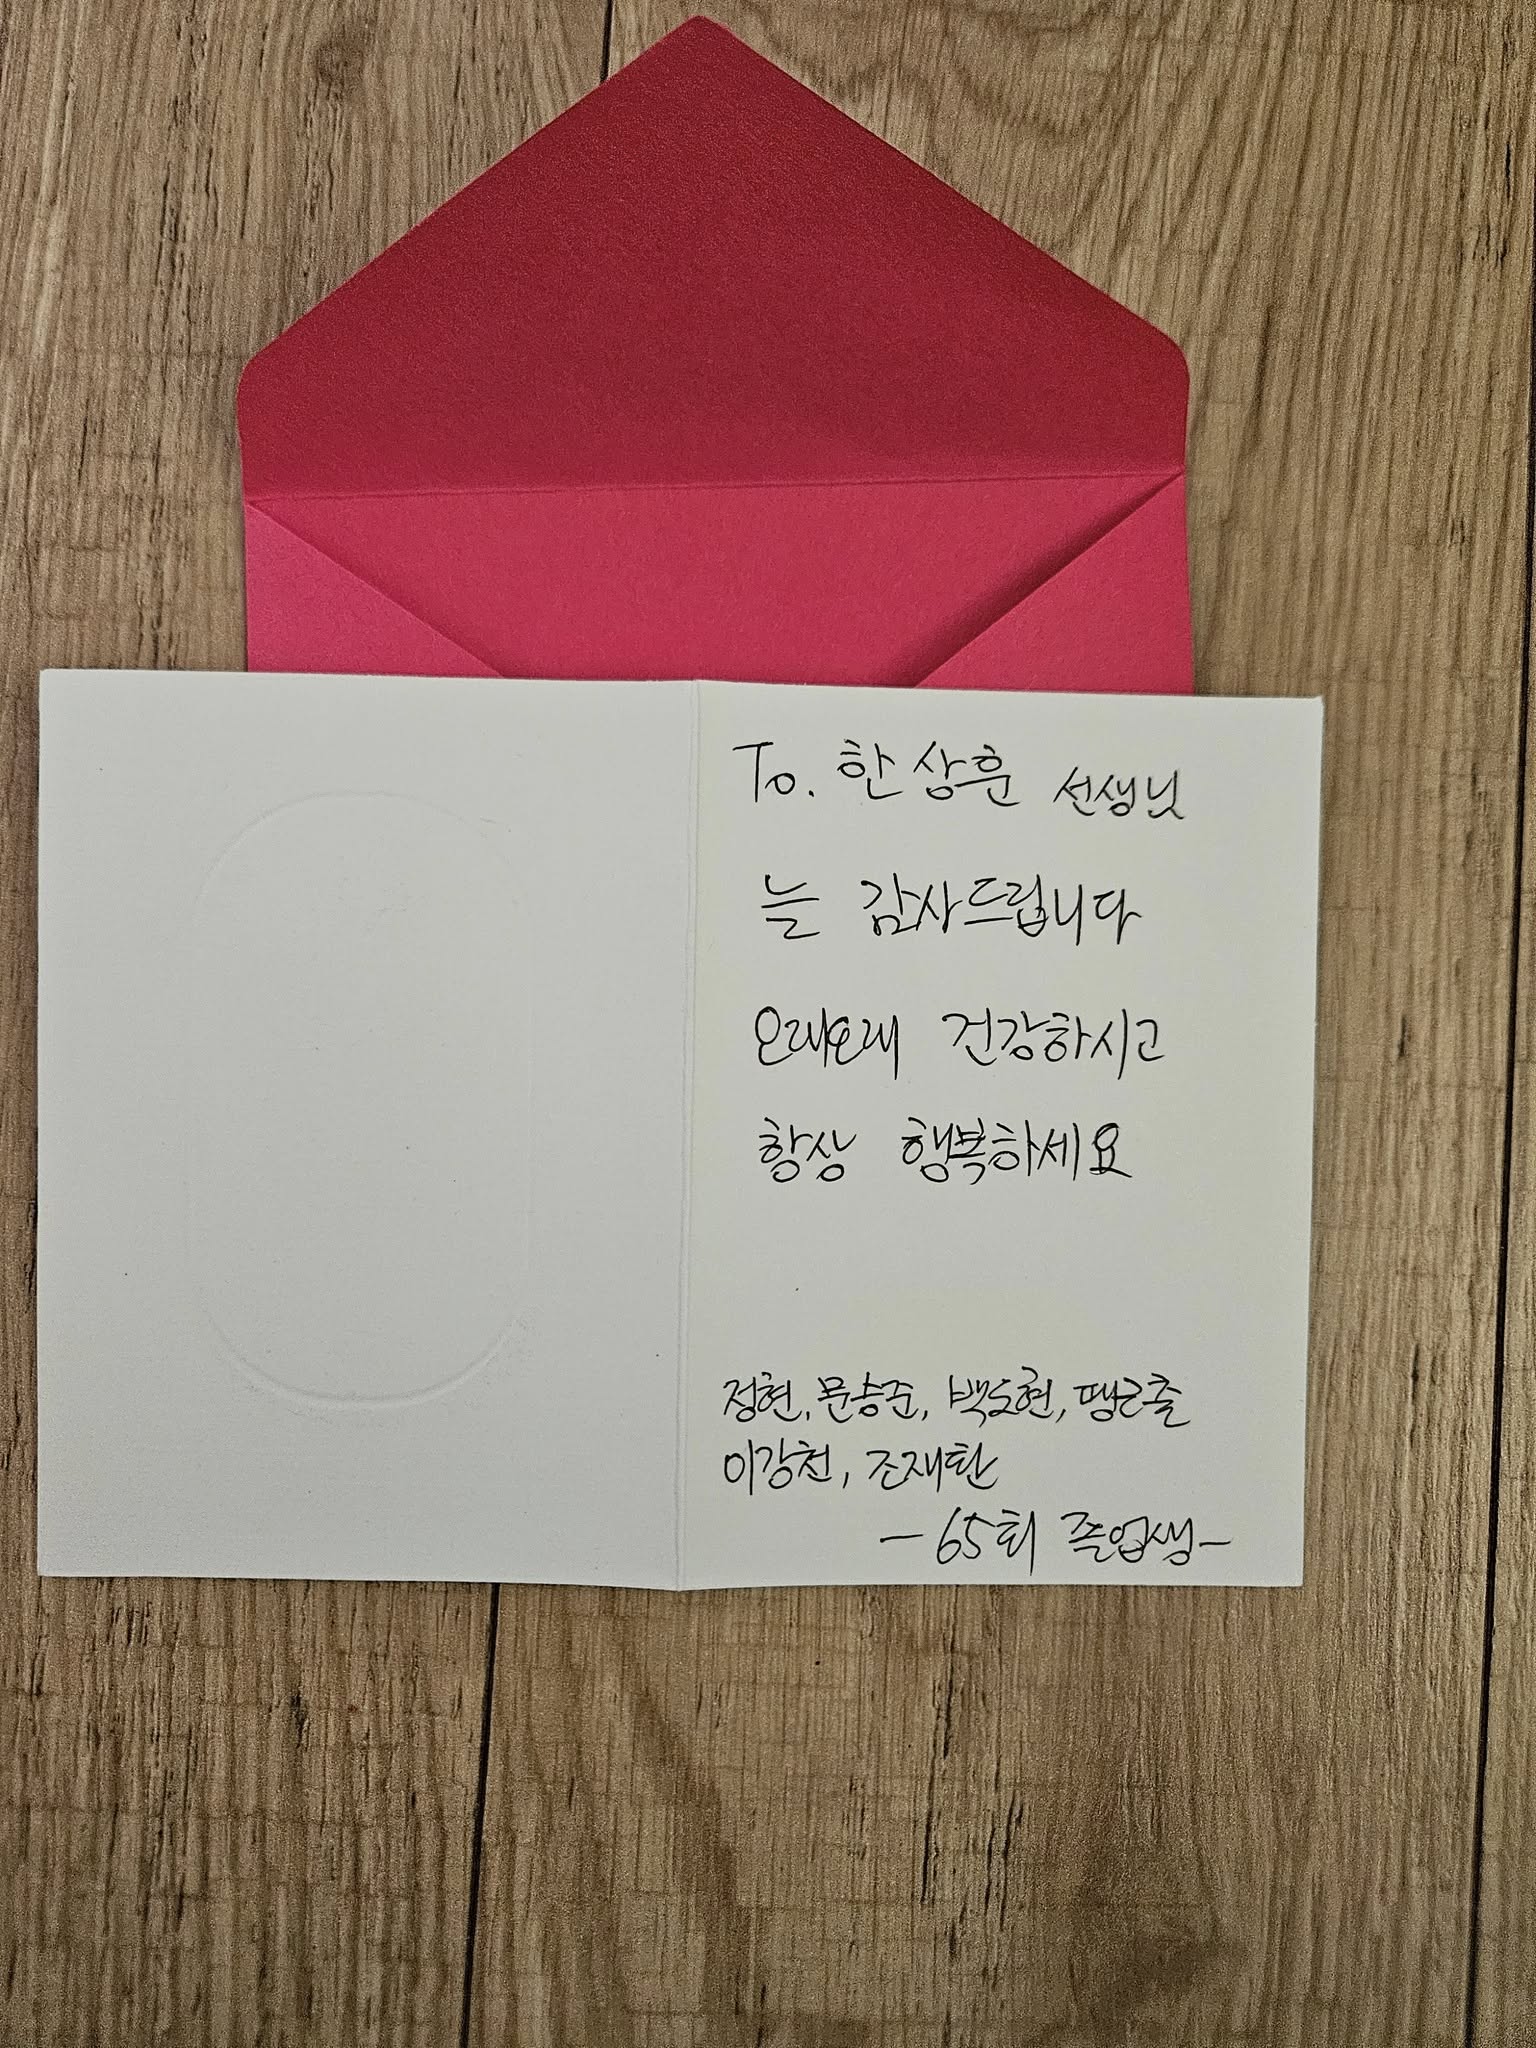 To. 한상훈 선생님
늘 감사드립니다
오래오래 건강하시고
항상 행복하세요
정현, 문승준, 백도현,
이강천, 조재환
- 65회 졸업생 -